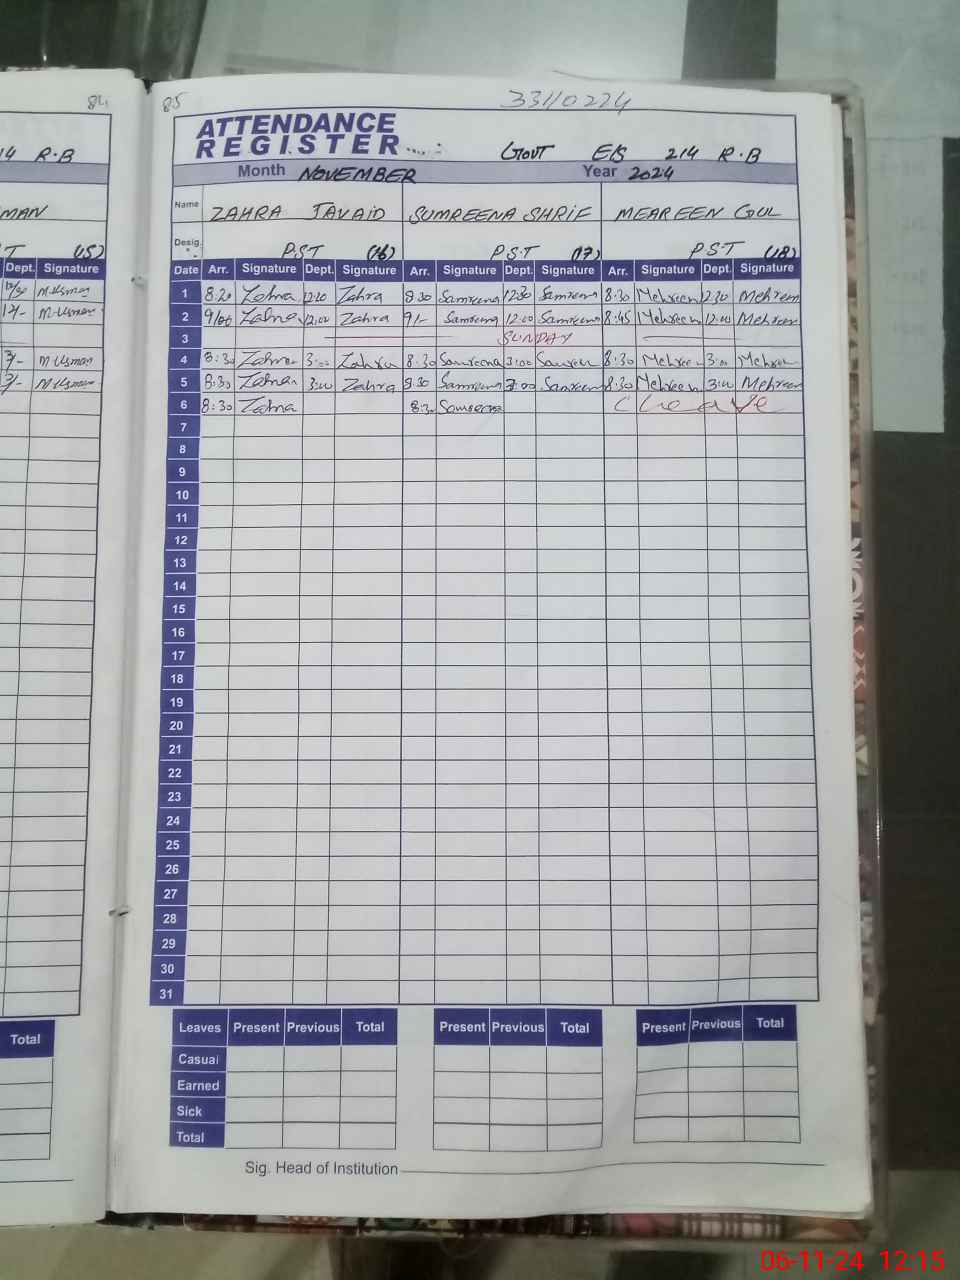 84
14 R.B
MAN
T (15)
Dept. Signature
12/30 M.Usman
12/- M.Usman
3/- M Usman
3/- M Usman
Total
85
33110224
ATTENDANCE
REGISTER
GOVT E/S 214 R.B
Month NOVEMBER Year 2024
Name ZAHRA JAVAID SUMREENA SHRIF MEAREEN GUL
Desig. P.S.T (16) P.S.T (17) P.S.T (18)
Date Arr. Signature Dept. Signature Arr. Signature Dept. Signature Arr. Signature Dept. Signature
1 8:20 Zahra 12:30 Zahra 8:30 Samreena 12:30 Samreena 8:30 Mehreen 12:30 Mehreen
2 9/00 Zahra 12:00 Zahra 9/- Samreena 12:00 Samreena 8:45 Mehreen 12:00 Mehreen
3 SUNDAY
4 8:30 Zahra 3:00 Zahra 8:30 Samreena 3:00 Samreen 8:30 Mehreen 3:00 Mehreen
5 8:30 Zahra 3:00 Zahra 8:30 Samreena 3:00 Samreen 8:30 Mehreen 3:00 Mehreen
6 8:30 Zahra 8:30 Samreena C leave
7
8
9
10
11
12
13
14
15
16
17
18
19
20
21
22
23
24
25
26
27
28
29
30
31
Leaves Present Previous Total Present Previous Total Present Previous Total
Casual
Earned
Sick
Total
Sig. Head of Institution
06-11-24 12:15